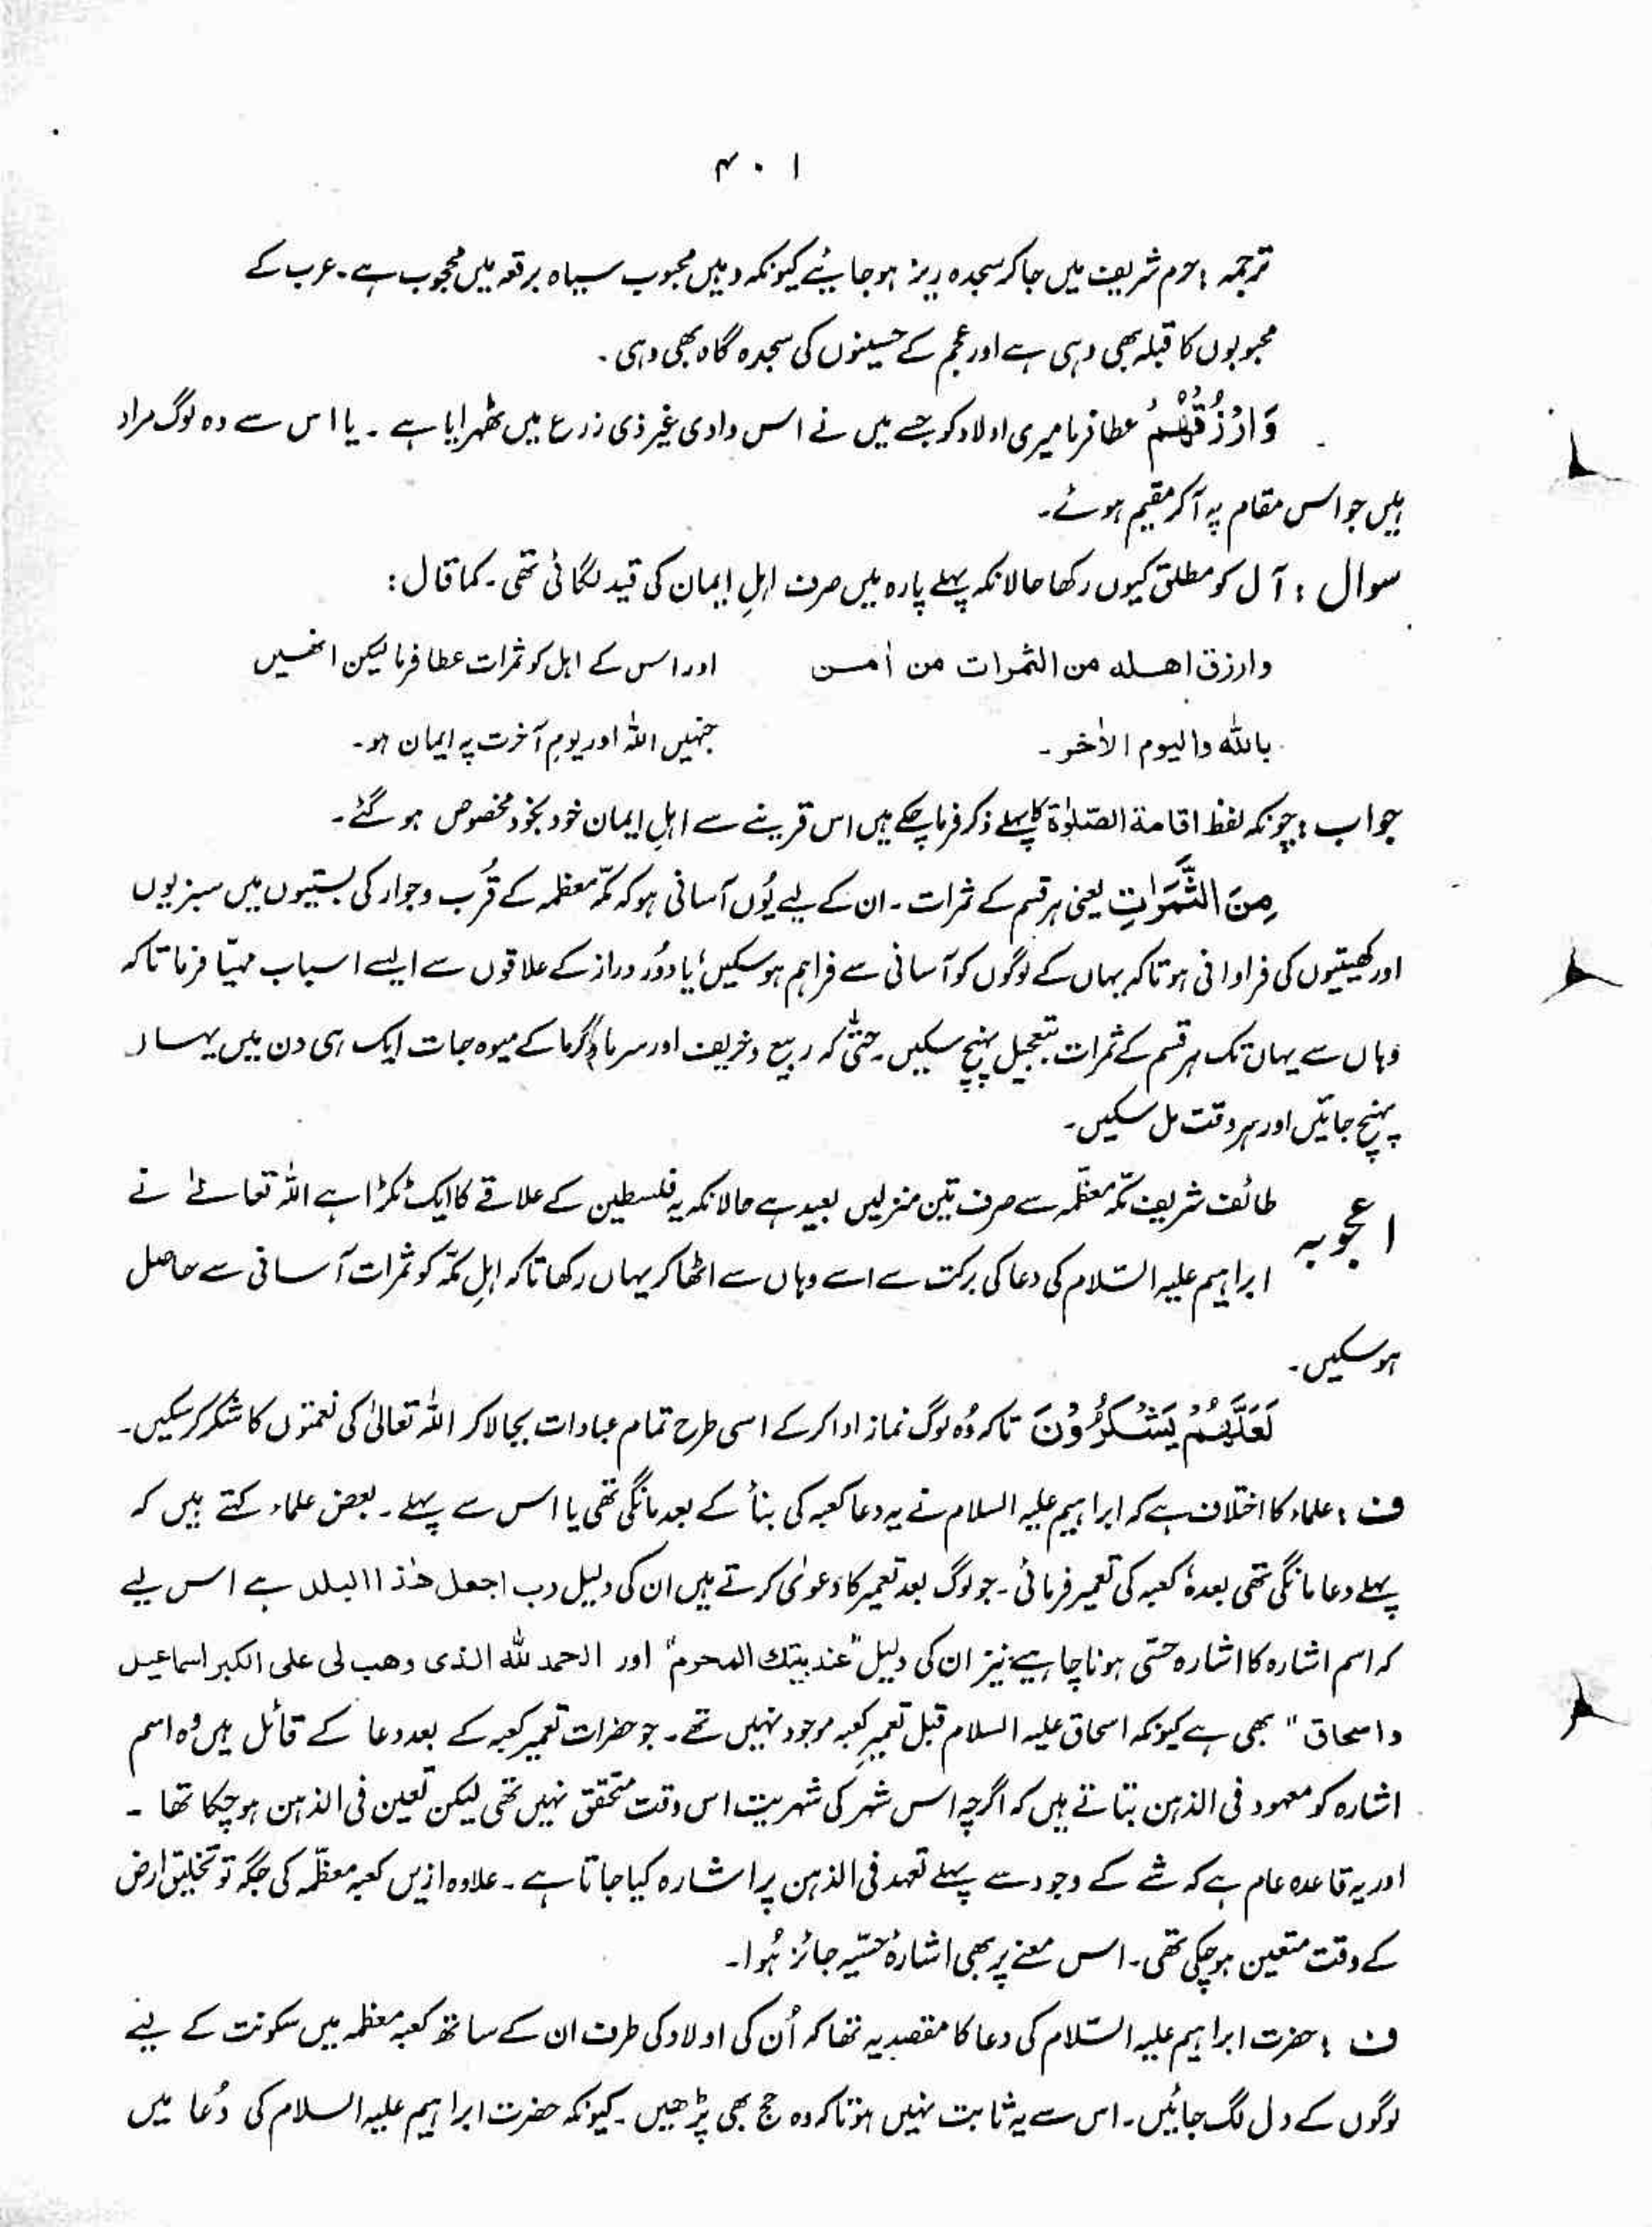 ۴۰۱
ترجمہ : حرم شریف میں جا کر سجدہ ریز ہو جائیے کیونکہ وہیں محبوب سیاہ برقعہ میں محجوب ہے۔ عرب کے
محبوبوں کا قبلہ بھی وہی ہے اور عجم کے حسینوں کی سجدہ گاہ بھی وہی۔
وَارْزُقْهُمْ عطا فرما میری اولاد کو جسے میں نے اس وادی غیر ذی زرع میں ٹھہرایا ہے۔ یا اس سے وہ لوگ مراد
ہیں جو اس مقام پہ آکر مقیم ہوئے۔
سوال : آل کو مطلق کیوں رکھا حالانکہ پہلے پارہ میں صرف اہلِ ایمان کی قید لگائی تھی۔ کما قال :
وارزق اھلہ من الثمرات من اٰمن اور اس کے اہل کو ثمرات عطا فرما لیکن انھیں
باللہ والیوم الاٰخر۔ جنہیں اللہ اور یومِ آخرت پہ ایمان ہو۔
جواب : چونکہ لفظ اقامۃ الصّلوٰۃ کا پہلے ذکر فرما چکے ہیں اس قرینے سے اہلِ ایمان خود بخود مخصوص ہو گئے۔
مِنَ الثَّمَرٰتِ یعنی ہر قسم کے ثمرات۔ ان کے لیے یُوں آسانی ہو کہ مکّہ معظمہ کے قُرب و جوار کی بستیوں میں سبزیوں
اور کھیتیوں کی فراوانی ہو تاکہ یہاں کے لوگوں کو آسانی سے فراہم ہو سکیں، یا دُور دراز کے علاقوں سے ایسے اسباب مہیّا فرما تاکہ
وہاں سے یہاں تک ہر قسم کے ثمرات بتعجیل پہنچ سکیں۔ حتّٰی کہ ربیع و خریف اور سرما و گرما کے میوہ جات ایک ہی دن میں یہاں
پہنچ جائیں اور ہر وقت مل سکیں۔
اعجوبہ طائف شریف مکّہ معظّمہ سے صرف تین منزلیں بعید ہے حالانکہ یہ فلسطین کے علاقے کا ایک ٹکڑا ہے اللہ تعالےٰ نے
ابراہیم علیہ السّلام کی دعا کی برکت سے اسے وہاں سے اٹھا کر یہاں رکھا تاکہ اہلِ مکّہ کو ثمرات آسانی سے حاصل
ہو سکیں۔
لَعَلَّهُمْ يَشْكُرُوْنَ تاکہ وُہ لوگ نماز ادا کرکے اسی طرح تمام عبادات بجا لا کر اللہ تعالیٰ کی نعمتوں کا شکر کر سکیں۔
ف : علماء کا اختلاف ہے کہ ابراہیم علیہ السلام نے یہ دعا کعبہ کی بنأ کے بعد مانگی تھی یا اس سے پہلے۔ بعض علماء کہتے ہیں کہ
پہلے دعا مانگی تھی بعدہٗ کعبہ کی تعمیر فرمائی۔ جو لوگ بعد تعمیر کا دعوٰی کرتے ہیں ان کی دلیل رب اجعل ھٰذا البلد ہے اس لیے
کہ اسم اشارہ کا اشارہ حسّی ہونا چاہیے نیز ان کی دلیل "عند بیتك المحرم" اور الحمد للہ الذی وھب لی علی الکبر اسماعیل
واسحاق" بھی ہے کیونکہ اسحاق علیہ السلام قبل تعمیرِ کعبہ موجود نہیں تھے۔ جو حضرات تعمیر کعبہ کے بعد دعا کے قائل ہیں وُہ اسم
اشارہ کو معہود فی الذہن بتاتے ہیں کہ اگرچہ اس شہر کی شہریت اس وقت متحقق نہیں تھی لیکن تعین فی الذہن ہو چکا تھا۔
اور یہ قاعدہ عام ہے کہ شے کے وجود سے پہلے تعہد فی الذہن پر اشارہ کیا جاتا ہے۔ علاوہ ازیں کعبہ معظّمہ کی جگہ تو تخلیق ارض
کے وقت متعین ہو چکی تھی۔ اس معنے پر بھی اشارہٗ حسّیہ جائز ہُوا۔
ف : حضرت ابراہیم علیہ السّلام کی دعا کا مقصد یہ تھا کہ اُن کی اولاد کی طرف ان کے ساتھ کعبہ معظمہ میں سکونت کے لیے
لوگوں کے دل لگ جائیں۔ اس سے یہ ثابت نہیں ہوتا کہ وہ حج بھی پڑھیں۔ کیونکہ حضرت ابراہیم علیہ السلام کی دُعا میں